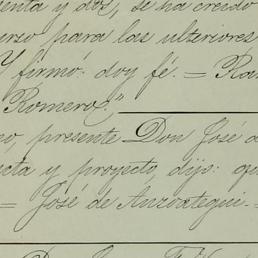 enta y dos, se ha creido
erzo para las ulteriores
Y firmó: doy fé. = Ra
Romero."
o, presente Don José
cta y proyecto, dijo: qu
= José de Anzoategui. =